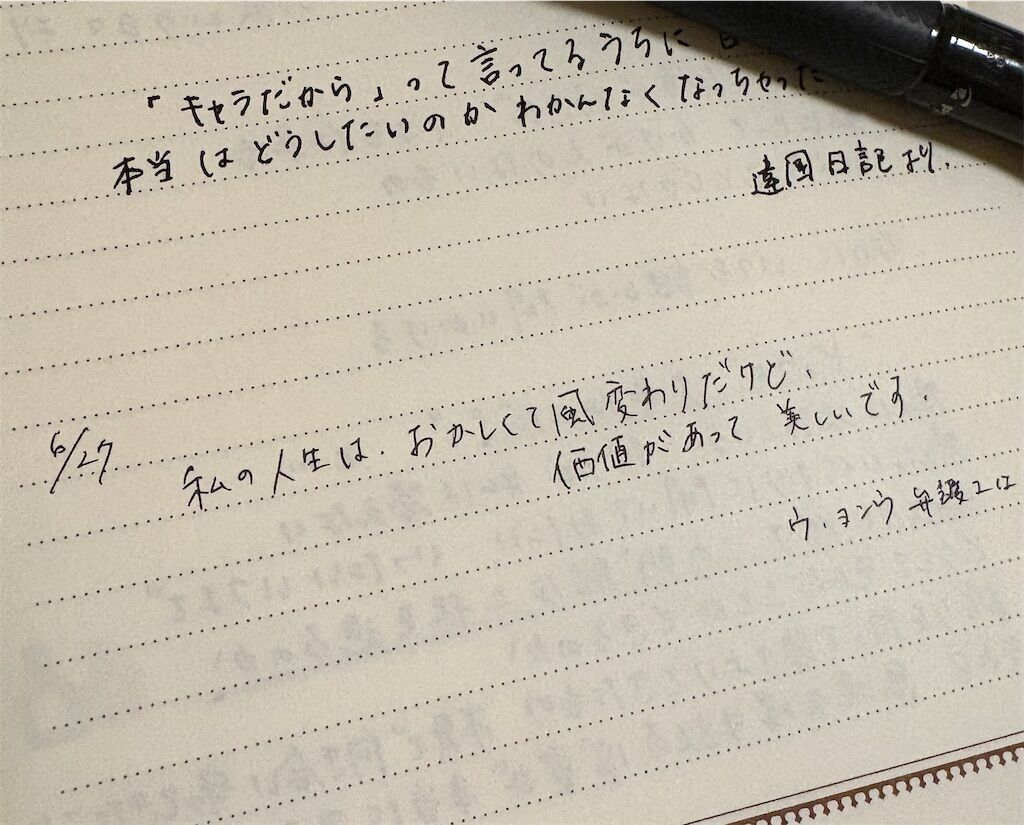 「キャラだから」って言ってるうちに
本当はどうしたいのかわかんなくなっちゃった
違国日記より.
6/27
私の人生は、おかしくて風変わりだけど、
価値があって美しいです.
ウ・ヨンウ弁護士は